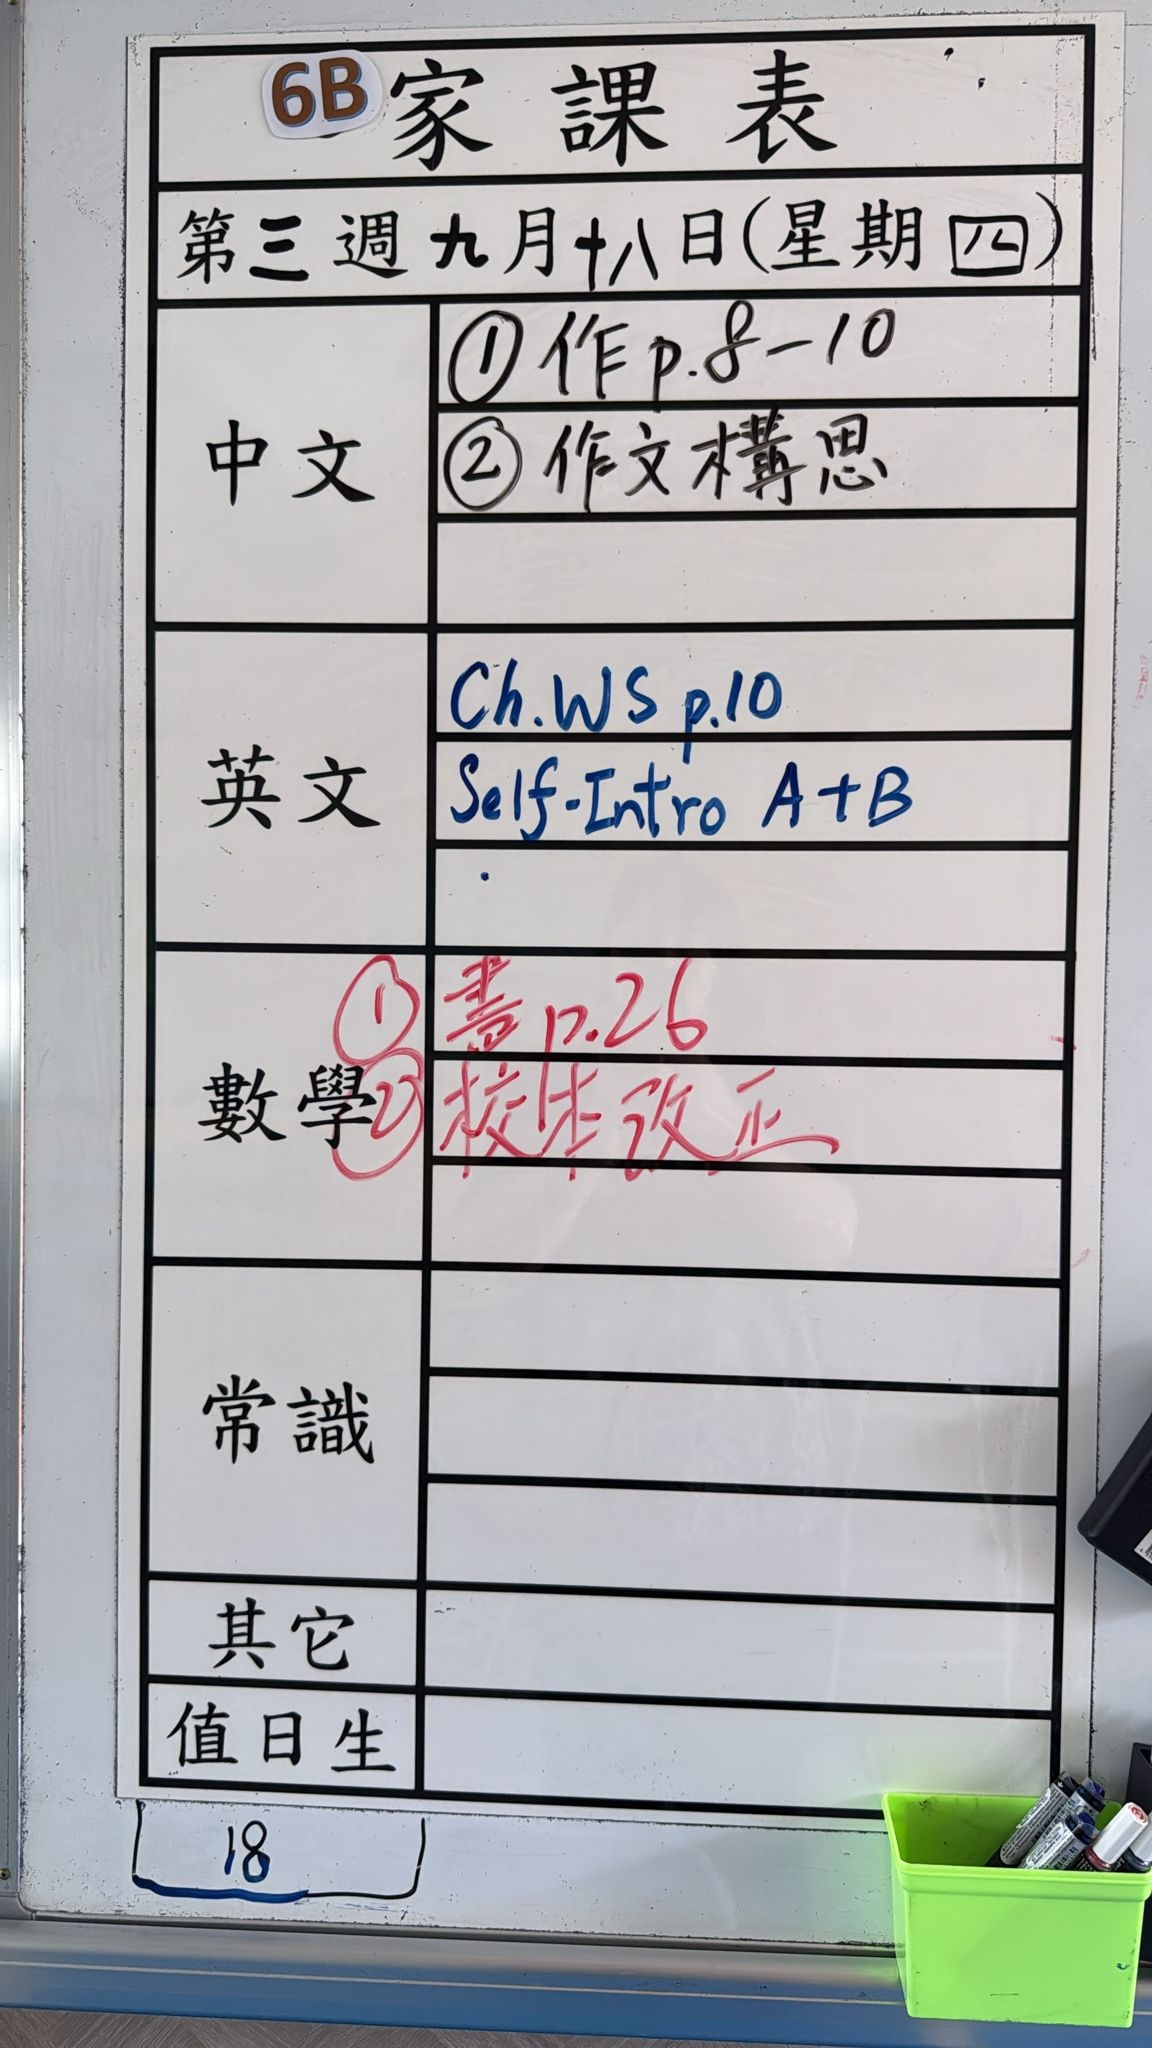 6B 家課表
第三週九月十八日(星期四)
中文
① 作 p.8-10
② 作文構思
英文
Ch.WS p.10
Self-Intro A+B
數學
① 書 p.26
② 校本改正
常識
其它
值日生
18